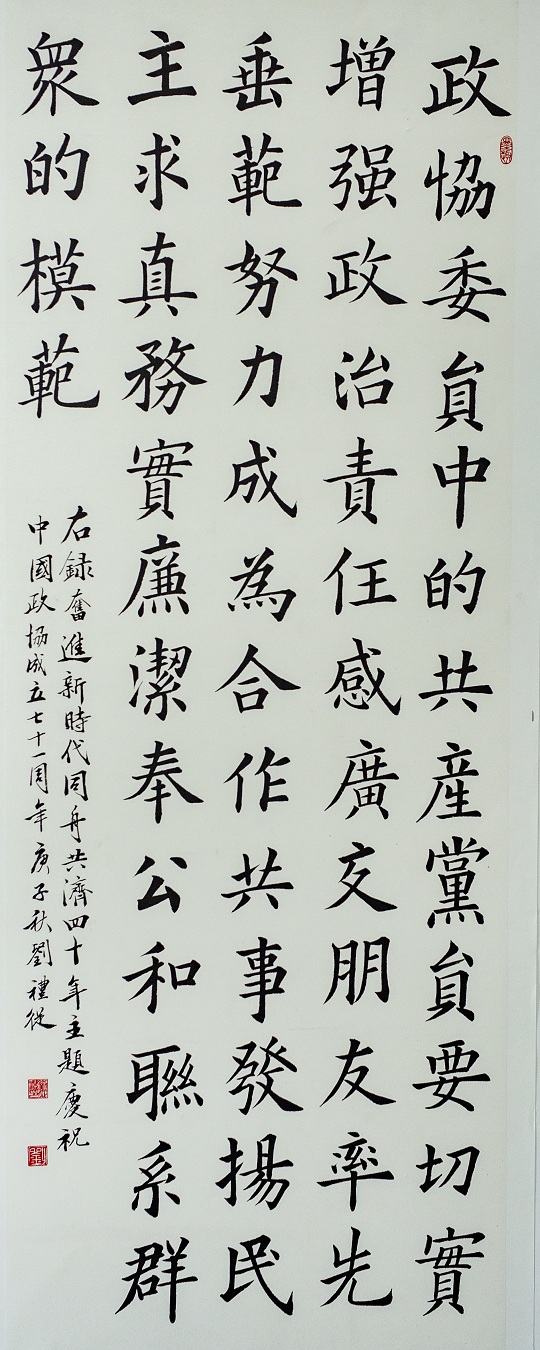 政協委員中的共產黨員要切實
增强政治責任感廣交朋友率先
垂範努力成為合作共事發揚民
主求真務實廉潔奉公和聯系群
衆的模範
右録奮進新時代同舟共濟四十年主題慶祝
中國政協成立七十一周年庚子秋劉禮從